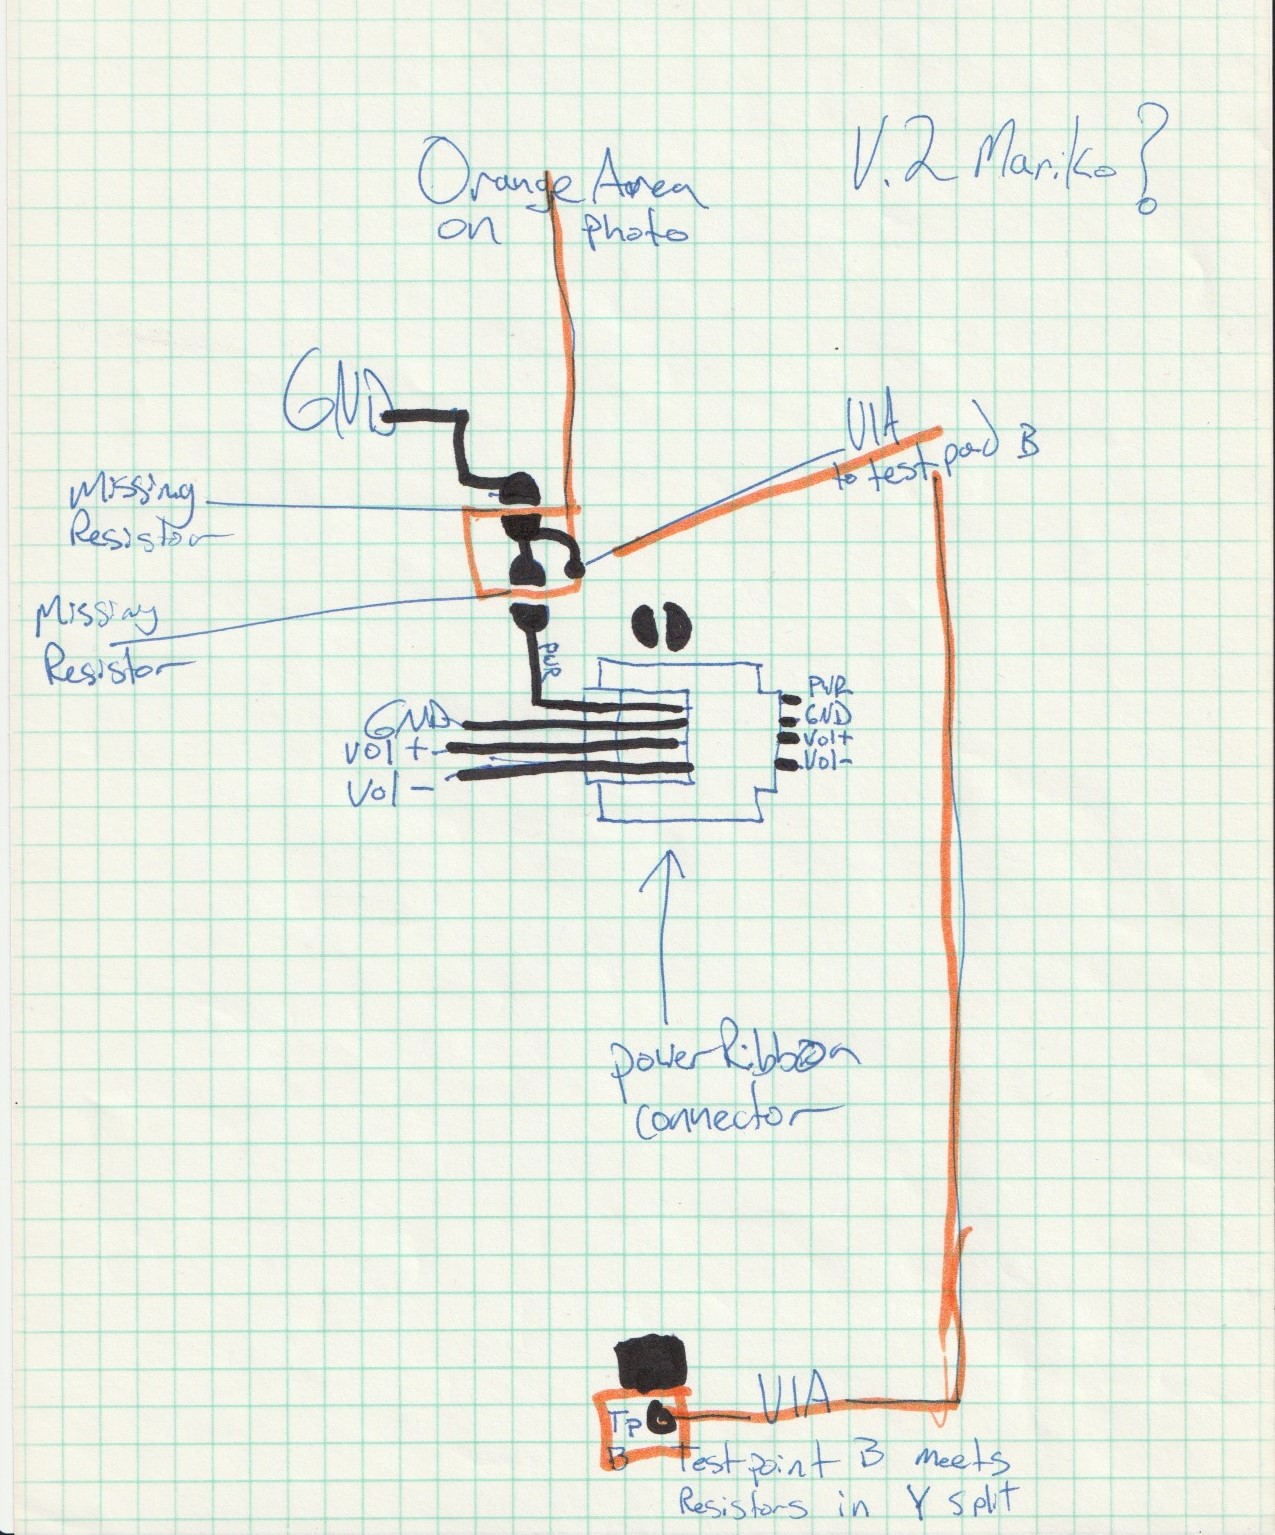 V.2 Mariko?
Orange Area
on photo
GND
VIA
to testpad B
Missing
Resistor
Missing
Resistor
PWR
PWR
GND
GND
Vol+
vol +
Vol-
Vol -
power Ribbon
connector
VIA
Tp
B
Testpoint B meets
Resistors in Y split